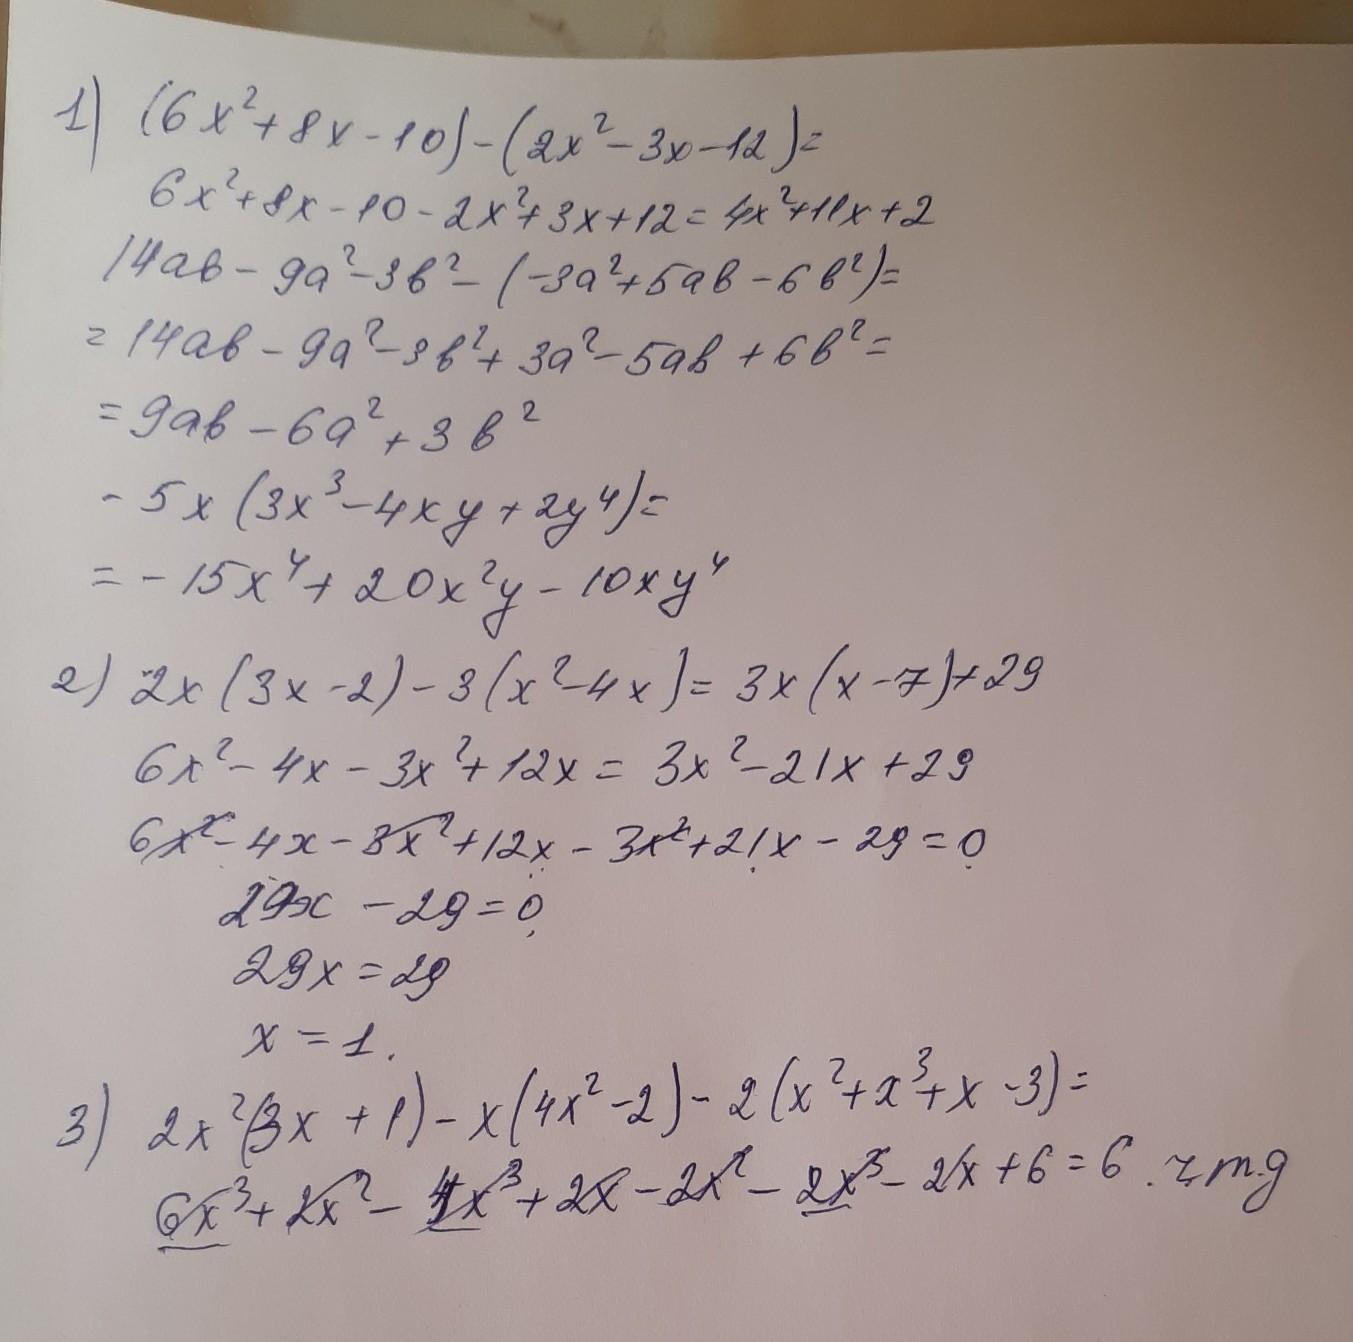 1) (6x²+8x-10)-(2x²-3x-12)=
6x²+8x-10-2x²+3x+12=4x²+11x+2
14ab-9a²-3b²-(-3a²+5ab-6b²)=
=14ab-9a²-3b²+3a²-5ab+6b²=
=9ab-6a²+3b²
-5x(3x³-4xy+2y⁴)=
=-15x⁴+20x²y-10xy⁴
2) 2x(3x-2)-3(x²-4x)=3x(x-7)+29
6x²-4x-3x²+12x=3x²-21x+29
6x²-4x-3x²+12x-3x²+21x-29=0
29x-29=0
29x=29
x=1.
3) 2x²(3x+1)-x(4x²-2)-2(x²+x³+x-3)=
6x³+2x²-4x³+2x-2x²-2x³-2x+6=6.